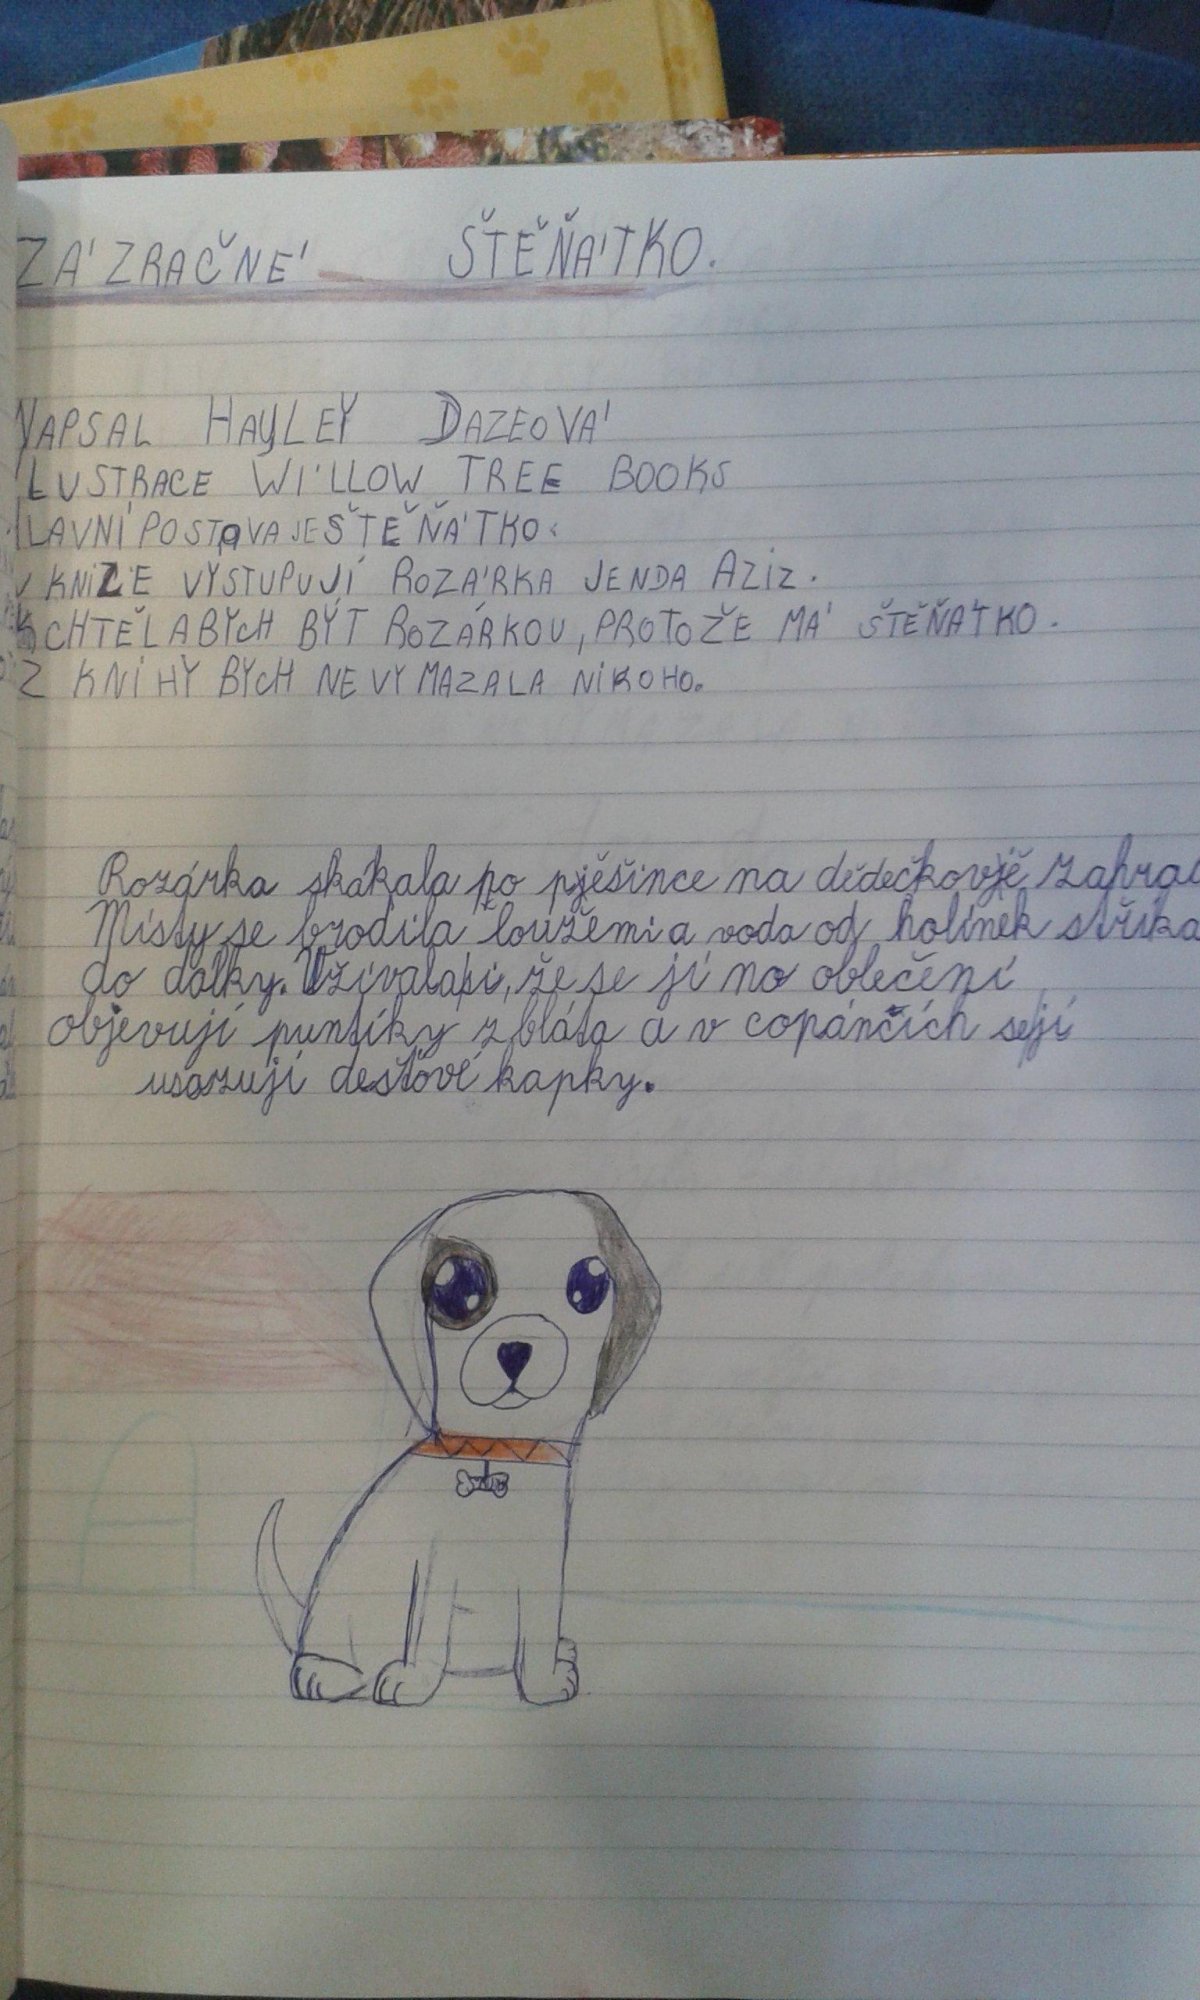 ZÁZRAČNÉ ŠTĚŇÁTKO.
NAPSAL HAYLEY DAZEOVÁ
ILUSTRACE WILLOW TREE BOOKS
HLAVNÍ POSTAVA JE ŠTĚŇÁTKO.
V KNIZE VYSTUPUJÍ ROZÁRKA JENDA AZIZ.
CHTĚLA BYCH BÝT ROZÁRKOU, PROTOŽE MÁ ŠTĚŇÁTKO.
Z KNIHY BYCH NEVYMAZALA NIKOHO.
Rozárka skákala po pješince na dědečkovjě zahrad
Místy se brodila loužemi a voda od holínek stříka
do dálky. Užívala si, že se jí na oblečení
objevují puntíky z bláta a v copáncích se jí
usazují dešťové kapky.